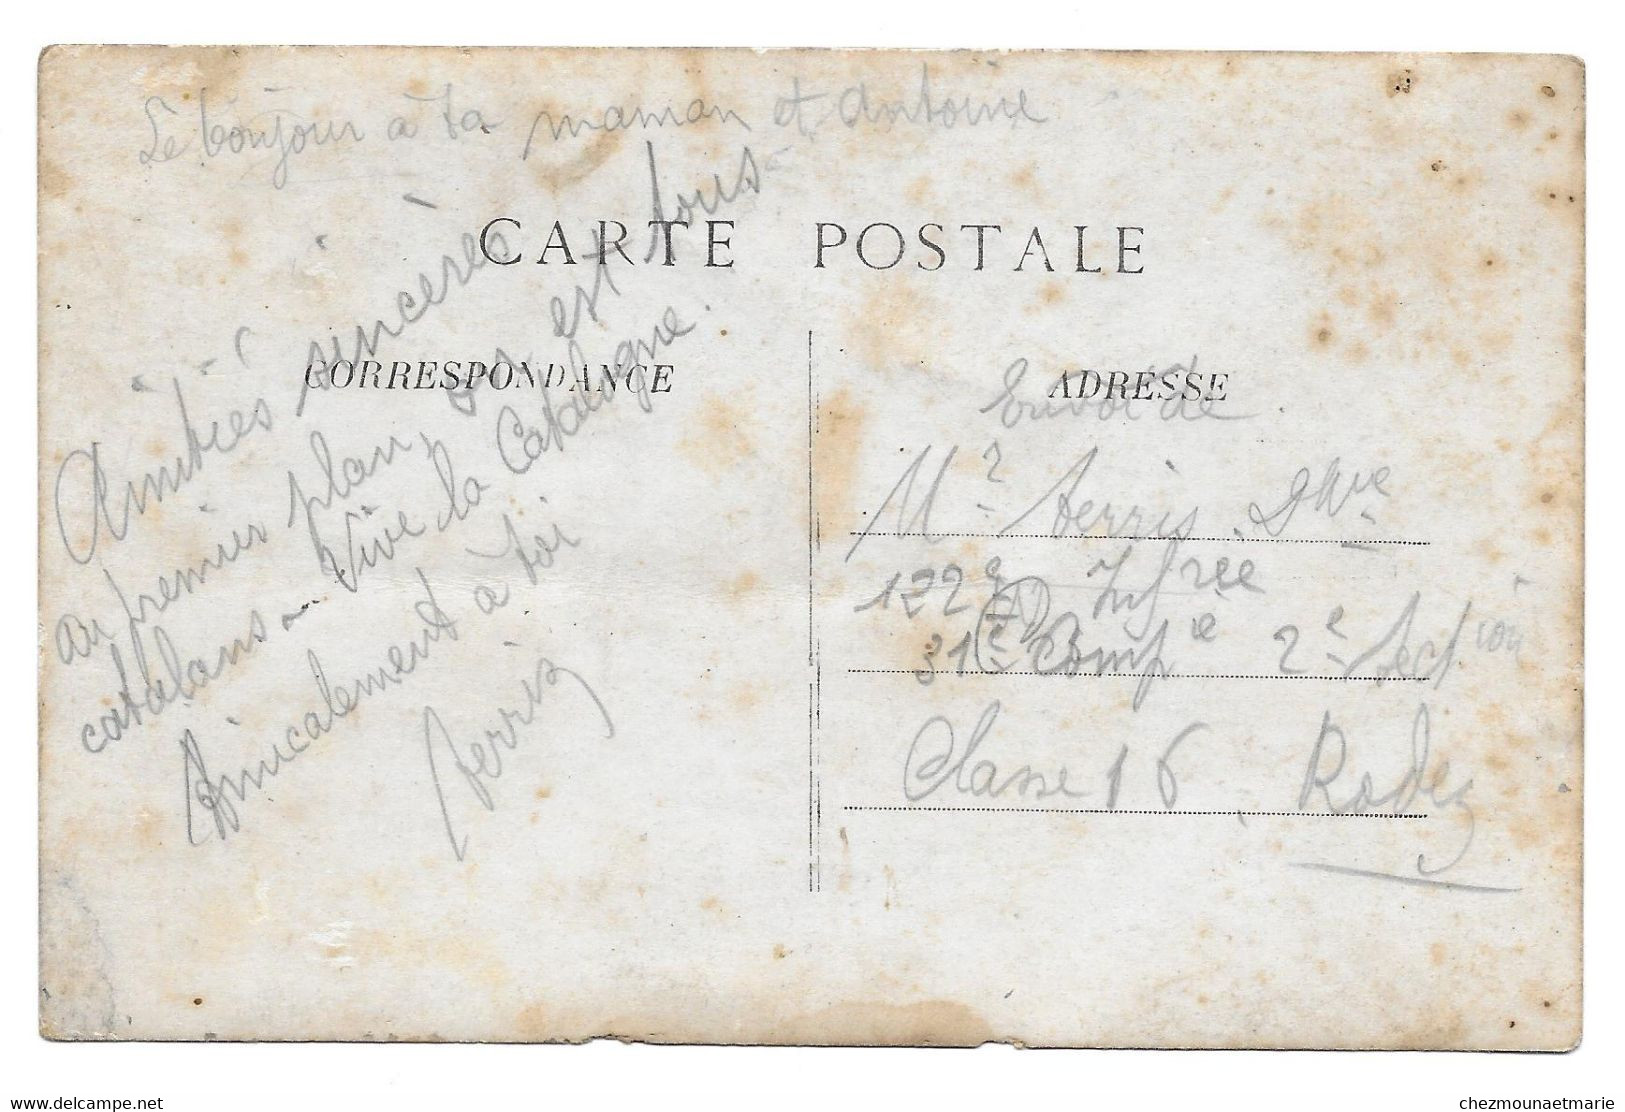 Le bonjour à ta maman et Antoine
CARTE POSTALE
CORRESPONDANCE
Amitiés sincères
Au premier plan, on est tous
catalans - Vive la Catalogne.
Amicalement à toi
Serris
ADRESSE
Envoi de
Mr Serris
122e Infrie
31e Compie 2e Section
Classe 16 Rodez
www.delcampe.net
chezmounaetmarie